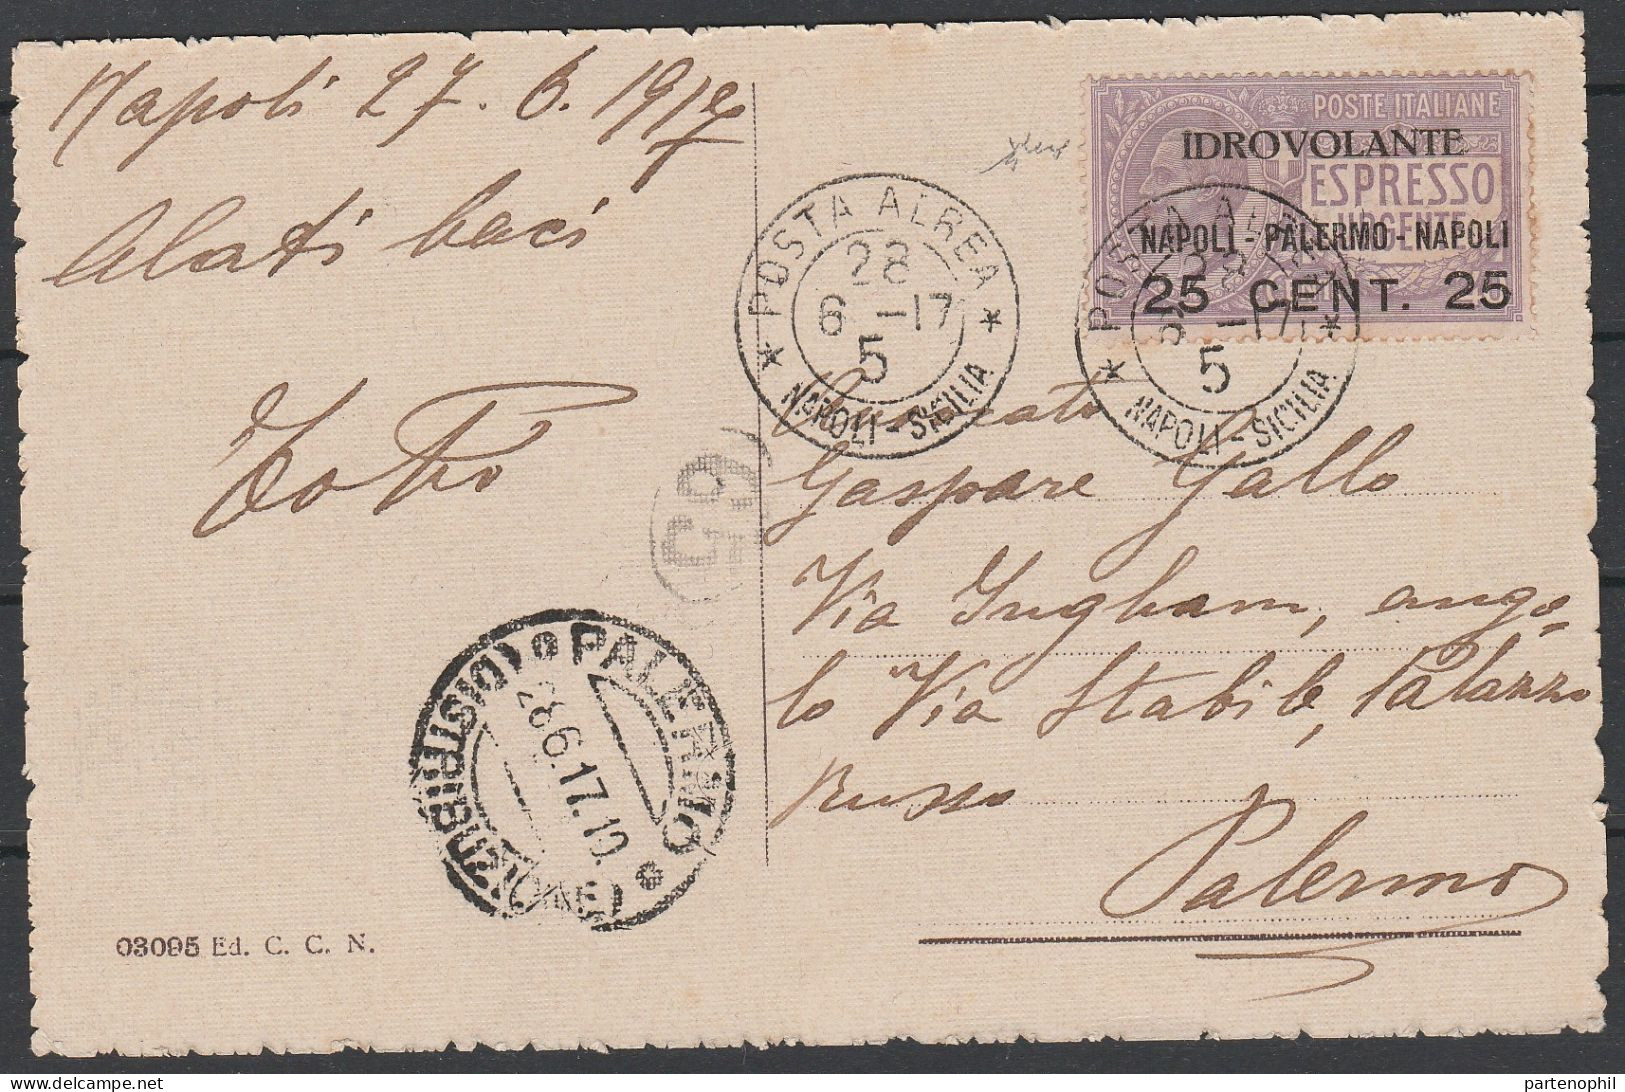 Napoli 27. 6. 1917
Alati baci
POSTE ITALIANE
IDROVOLANTE
ESPRESSO
URGENTE
NAPOLI - PALERMO - NAPOLI
25 CENT. 25
* POSTA AEREA *
28
6 -17
5
NAPOLI - SICILIA
* POSTA AEREA *
28
6 -17
5
NAPOLI - SICILIA
Gaspare Gallo
Via Ingham, ango-
lo Via Stabile, Palazzo
Russo
Palermo
PALERMO
28.6.17.10
(DISTRIBUZIONE)
03095 Ed. C. C. N.
partenophil